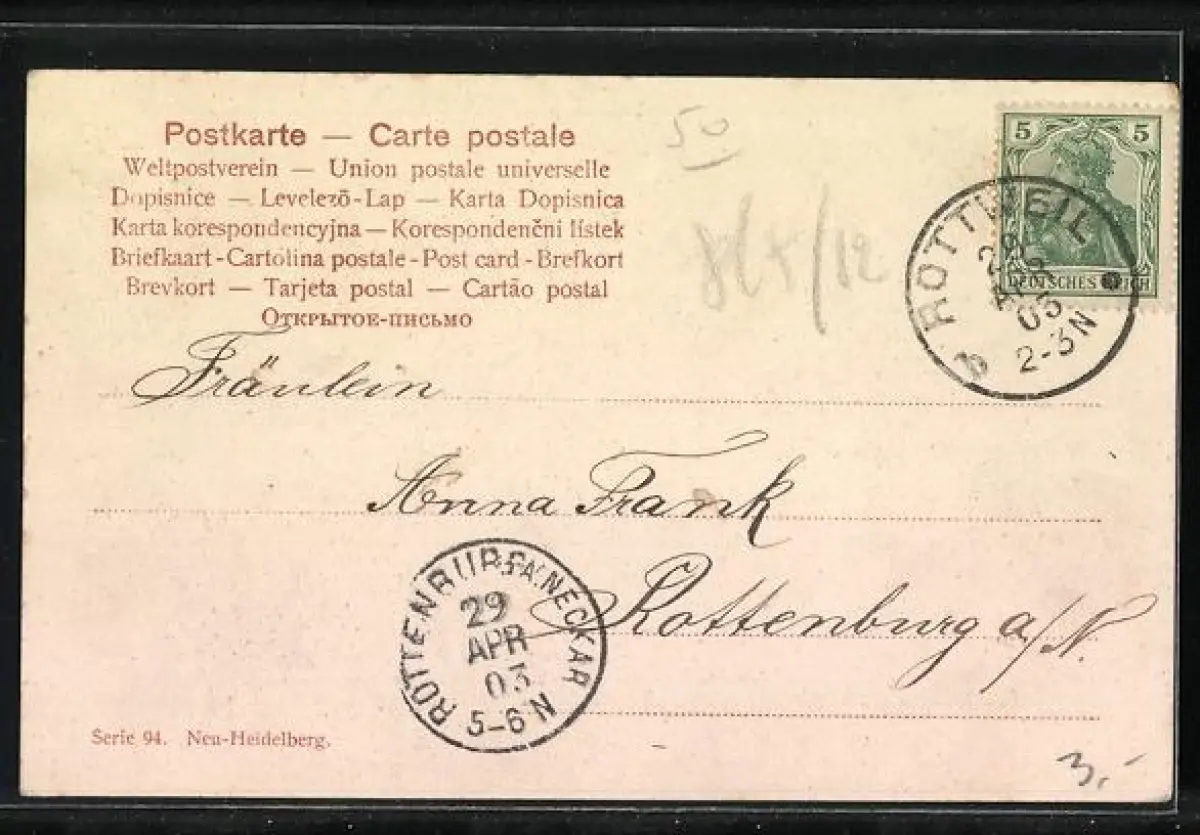 Postkarte — Carte postale
Weltpostverein — Union postale universelle
Dopisnice — Levelező-Lap — Karta Dopisnica
Karta korespondencyjna — Korespondenčni lístek
Briefkaart - Cartolina postale - Post card - Brefkort
Brevkort — Tarjeta postal — Cartão postal
Открытое-письмо
50
5 5
DEUTSCHES REICH
ROTTWEIL
29
APR
03
2-3N
b
Fräulein
Anna Frank
Rottenburg a/N.
ROTTENBURG A. NECKAR
29
APR
03
5-6 N
Serie 94. Neu-Heidelberg.
3,-